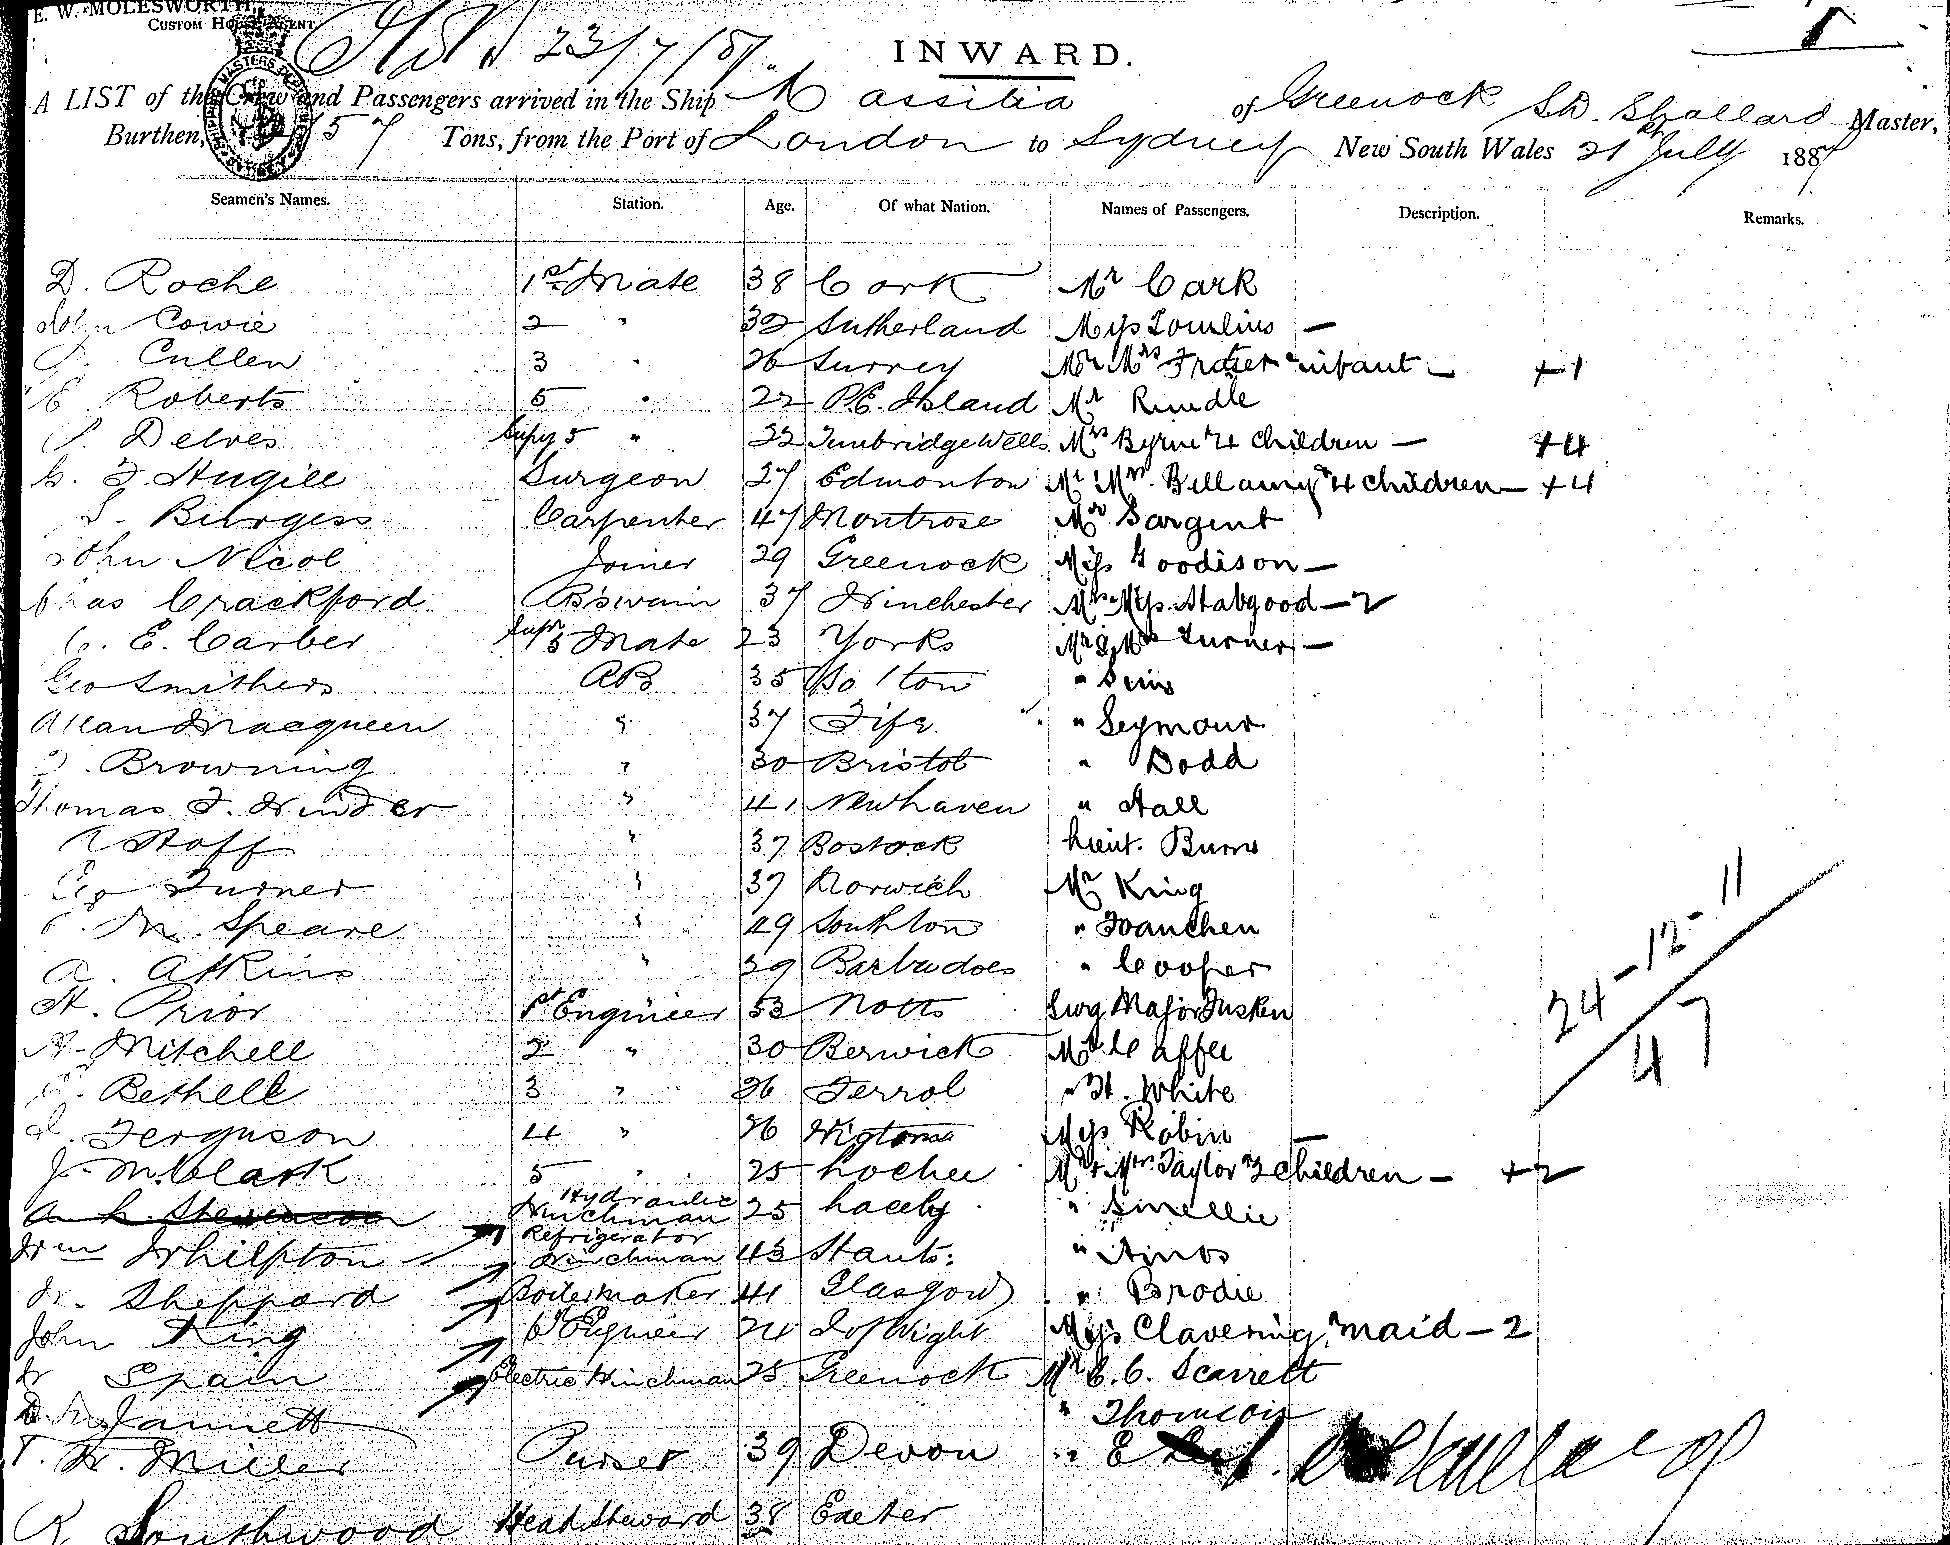 E. W. MOLESWORTH,
CUSTOM HOUSE AGENT
23/7/87.
INWARD.
A LIST of the Crew and Passengers arrived in the Ship Massilia of Greenock Shallard Master,
Burthen, Tons, from the Port of London to Sydney New South Wales 21st July 1887
Seamen's Names. Station. Age. Of what Nation. Names of Passengers. Description. Remarks.
D. Roche 1st Mate 38 Cork Mr Cark
John Cowie 2 " 32 Sutherland Miss Tomlins —
Cullen 3 " 26 Surrey Mr Mrs Frater infant — +1
E Roberts 5 " 22 P.E. Island Mr Rundle
Delves Supy 5 " 22 Tunbridge Wells Mrs Byrne 4 children — +4
F Hugill Surgeon 27 Edmonton Mr Mrs Bellamy 4 children — +4
Burgess Carpenter 47 Montrose Mr Sargent
John Nicol Joiner 29 Greenock Miss Goodison —
Chas Crackford B'swain 37 Winchester Mrs Miss Stabgood — 2
C. E. Carber 5 Mate 23 Yorks Mr & Mrs Turner —
Geo Smithers AB 35 Bolton " Sims
Allan Macqueen " 37 Fife " Seymour
Browning " 30 Bristol " Dodd
Thomas F. Winder " 41 Newhaven " Hall
Hoff " 37 Bostock Lieut. Burns
Geo Turner " 37 Norwich Mr King
M. Speare " 49 Southton "
A. Atkins " 39 Barbadoes " Cooper
H. Prior 1st Engineer 53 Notts Surg Major
A. Mitchell 2 " 30 Berwick Mr
Bethell 3 " 26 Ferrol " H. White
Ferguson 4 " 26 Miss Robin —
J. McClark 5 " 25 Lochee Mr & Mrs Taylor 2 children — +2
A. L. Stevenson Hydraulic Winchman 25 Laceby " Smellie
Wm Whilpton Refrigerator Winchman 43 Hants: " Amos
W. Sheppard Boilermaker 41 Glasgow " Brodie
John King 6 Engineer 24 I of Wight Miss Clavering, maid — 2
Spain Electric Winchman 25 Greenock Mr C. C. Scarrett
Jannett " Thomson
T. W. Miller Purser 39 Devon " E
R Southwood Head Steward 38 Exeter
24 - 12 - 11
47